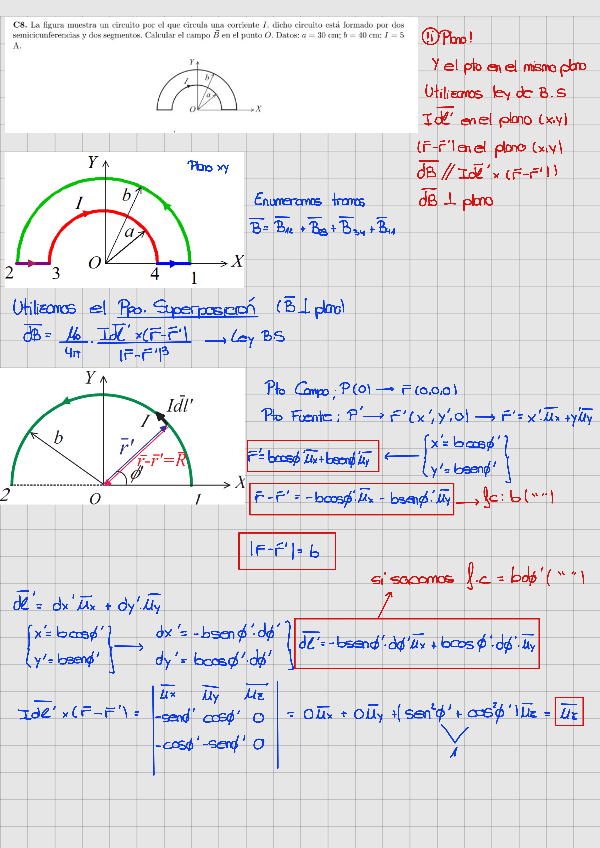 C8. La figura muestra un circuito por el que circula una corriente I. dicho circuito está formado por dos
semicircunferencias y dos segmentos. Calcular el campo B⃗ en el punto O. Datos: a = 30 cm; b = 40 cm; I = 5
A.
Y
b
a
O
X
¡¡ Plano!
Y el pto en el mismo plano
Utilizamos ley de B.S
I dl' en el plano (x,y)
(r̄-r̄') en el plano (x,y)
dB // I dl' × (r̄-r̄')
dB ⊥ plano
Y
Plano xy
b
I
a
O
X
2
3
4
1
Enumeramos tramos
B̄ = B̄12 + B̄23 + B̄34 + B̄41
Utilizamos el Ppo. Superposición (B̄ ⊥ plano)
dB = μ0/4π · I dl' × (r̄-r̄')/|r̄-r̄'|³ → Ley BS
Y
I dl̄'
I
b
r̄'
r̄-r̄'=R̄
ϕ'
X
2
O
1
Pto Campo; P(0) → r̄(0,0,0)
Pto Fuente; P' → r̄'(x',y',0) → r̄' = x'·ūx + y'ūy
r̄' = bcosϕ'ūx + bsenϕ'ūy
{x' = bcosϕ'
y' = bsenϕ'}
r̄-r̄' = -bcosϕ'·ūx - bsenϕ'·ūy → f.c: b ("")
|r̄-r̄'| = b
si sacamos f.c = bdϕ' ("")
dl' = dx'ūx + dy'·ūy
{x' = bcosϕ'
y' = bsenϕ'} →
dx' = -bsenϕ'·dϕ'
dy' = bcosϕ'·dϕ'}
dl' = -bsenϕ'·dϕ'ūx + bcosϕ'·dϕ'·ūy
I dl' × (r̄-r̄') =
ūx ūy ūz
-senϕ' cosϕ' 0
-cosϕ' -senϕ' 0
= 0ūx + 0ūy + (sen²ϕ' + cos²ϕ')ūz = ūz
1